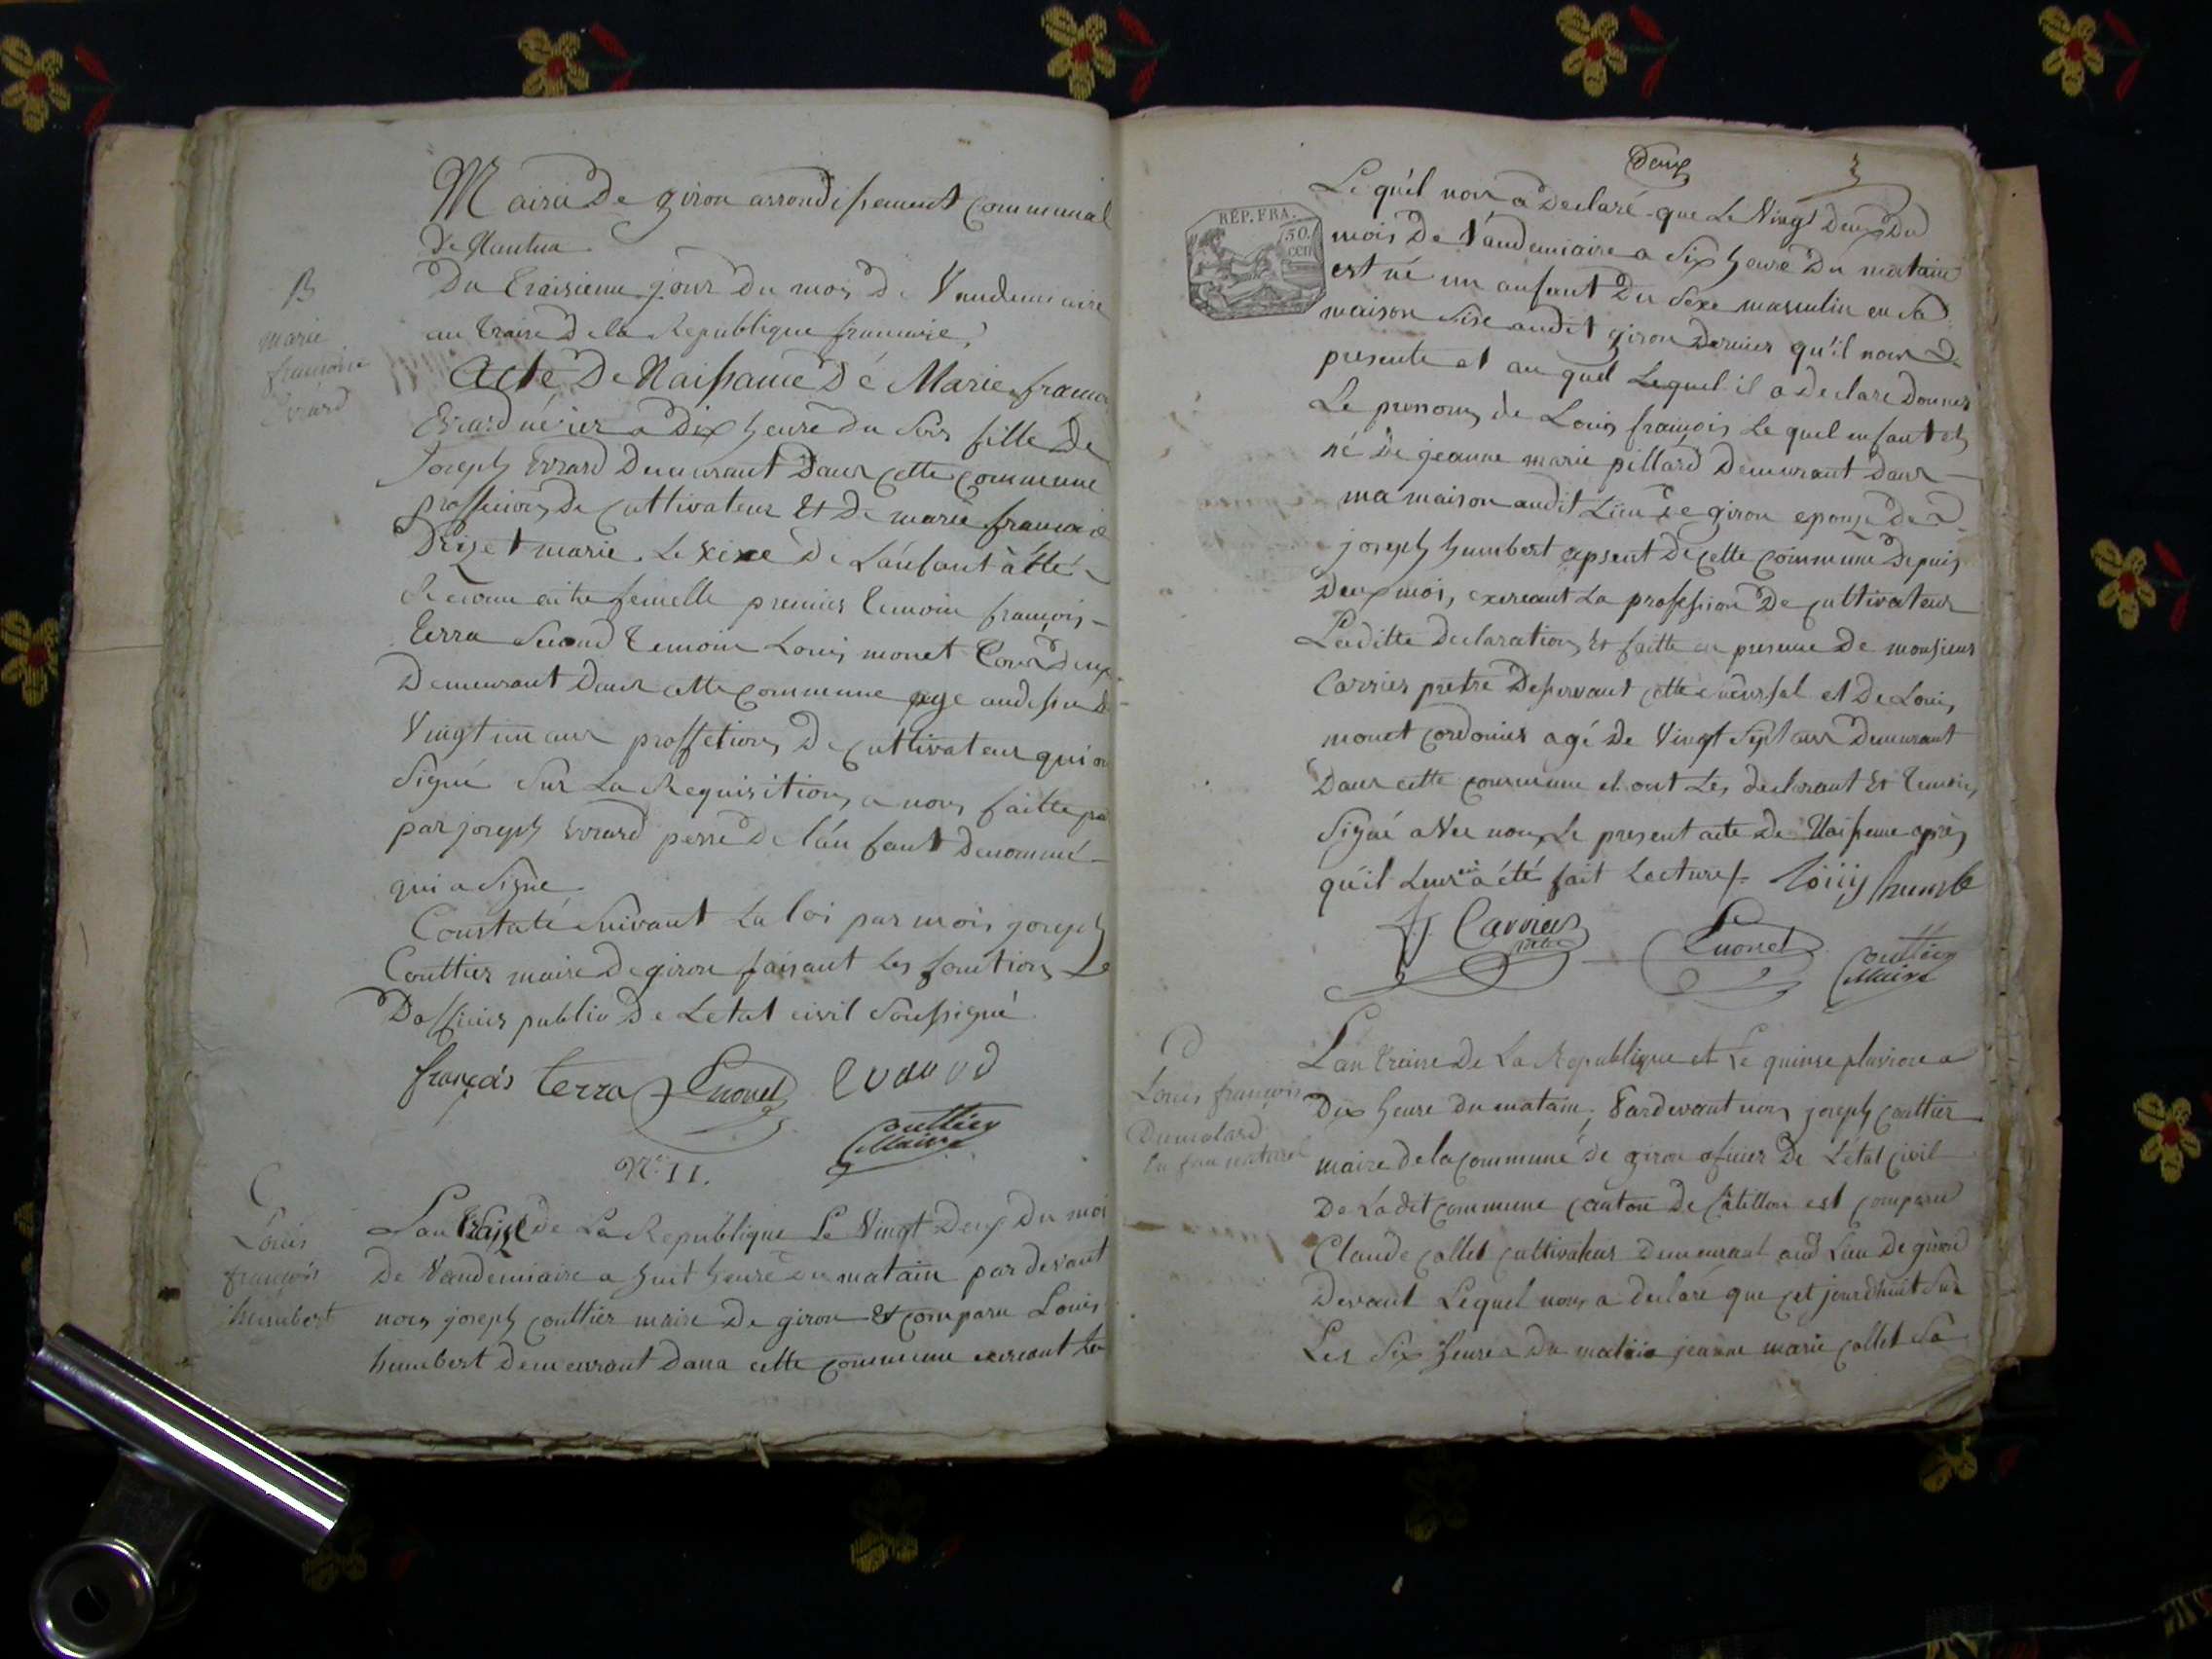 Mairie De giron arrondissement Communal
De Nantua
B
marie
françoise
Evrard
Du traisieme jour Du mois De Vendemiaire
an traise De la Republique francaise,
Acte De Naissance Dé Marie francoi
Evrard né hier a Dix heure du Soir fille De
Joseph Evrard Demeurant Dans cette commune
proffession De cultivateur Et De marie francoise
marie. Le sexe De L'anfant à été
Reconnu être femelle premier temoin françois
terra Second temoin Louis monet tous Deux
Demeurant Dans cette commune age audessu De
Vingt un ans proffetion De cultivateur qui on
Signé Sur La Requisition a nous faitte pa
par joseph Evrard perre De l'an fant Denommé
qui a Signe
Constaté Suivant La loi par mois joseph
Couttier maire De giron faisant Les fonctions De
Dofficier public De Letat civil Soussigné
françois terra Lmonet Evaurd
Couttier
Maire
N.° II.
C
Louis
françois
humbert
Lan traise de La Republique Le Vingt Deux Du moi
De Vandemiaire a huit heure du matain par devant
nous joseph couttier maire De giron Et comparu Louis
humbert Demeurant Dans cette commune exercant La
Deux
RÉP. FRA.
50.
cen
Le quél nous a Declaré que Le Vingt Deux Du
mois De Vandemiaire a Six heure Du matain
est né un anfant Du Sexe masculin en Sa
maison Sise audit giron Dernier qu'il nous
presente et au quel Lequel il a Declare Donner
Le prenom de Louis françois Le quel enfant est
né De jeanne marie pillard Demeurant Dans
ma maison audit Lieu De giron epouse De
joseph humbert apsent De cette commune Depuis
Deux mois, exercant La profession De cultivateur
Laditte Declaration Et faitte en presence De monsieur
Carrier pretre Desservant cette sucursal et De Louis
monet cordonier agé De Vingt Sept ans Demeurant
Dans cette commune et ont Les declarant Et temoins
Signé aVec nous Le present acte De Naissance après
qu'il Leur en a été fait Lecture/. Louis humb
Carrier
pretre
Lmonet
Couttier
Maire
D
Louis françois
Dumolard
en fan naturel
Lan traise De La Republique et Le quinse pluviose a
Dix heure du matain, Pardevant nous joseph couttier
maire de la commune de giron oficier De Létat civil
De La dit commune canton De Catillon est comparu
Claude collet cultivateur Demeurant aud Lieu De giron
Devant Lequel nous a declaré que cet jourdhuit Sur
Les Six heures Du matain jeanne marie collet Sa